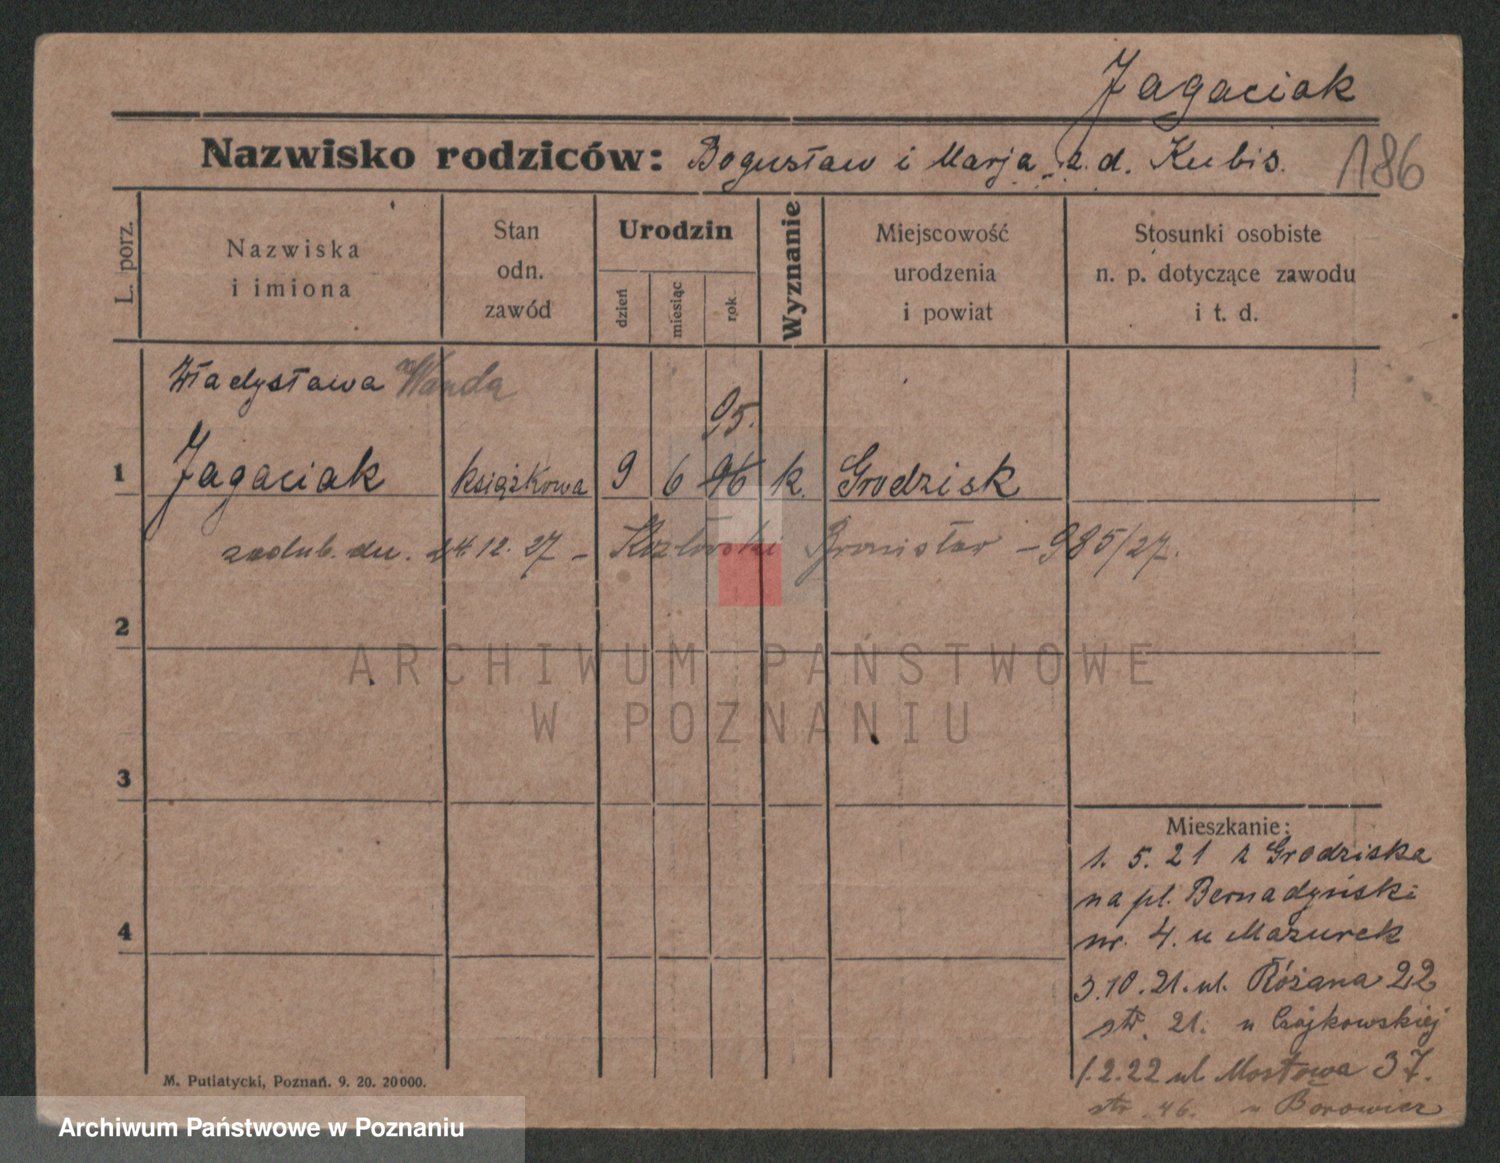 Jagaciak
Nazwisko rodziców: Bogusław i Marja z. d. Kubis.
186
L. porz.
Nazwiska
i imiona
Stan
odn.
zawód
Urodzin
dzień
miesiąc
rok
Wyznanie
Miejscowość
urodzenia
i powiat
Stosunki osobiste
n. p. dotyczące zawodu
i t. d.
Władysława Wanda
95.
1 Jagaciak książkowa 9 6 96 k. Grodzisk
zaślub. dn. 24.12.27 – Kozłowski Bronisław – 985/27.
2
3
4
ARCHIWUM PAŃSTWOWE
W POZNANIU
Mieszkanie:
1. 5. 21 z Grodziska
na pl. Bernadyński
nr. 4. u Mazurek
3.10.21. ul. Różana 22
str. 21. u Czajkowskiej
1.2.22 ul Mostowa 37.
str. 46. u Borowicz
M. Putiatycki, Poznań. 9. 20. 20000.
Archiwum Państwowe w Poznaniu